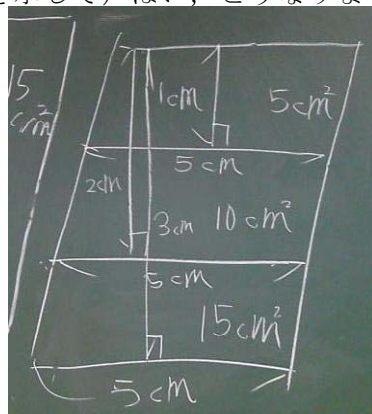 15
cm²
1cm
5cm²
5cm
2cm
3cm
10cm²
5cm
15cm²
5cm